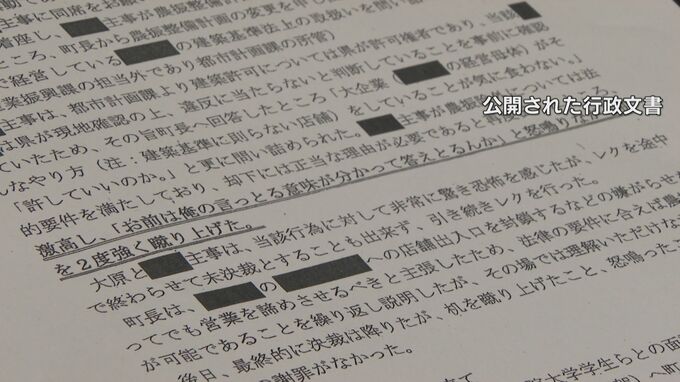 主事に同席をお願
着座し、 主事が農振整備計画の変更を申し
ところ、町長から農振整備計画
で経営している の建築基準法上の取扱いを問い詰
業振興課の担当外であり都市計画課の所管)
主事は、都市計画課より建築許可については県が許可権者であり、当該
は県が現地確認の上、違反に当たらないと判断していることを事前に確認
ていたため、その旨町長へ回答したところ「大企業 の経営母体)がそ
んなやり方(注:建築基準に則らない店舗)をしていることが気に食わない。」
「許していいのか。」と更に問い詰められた。 主事が農振
的要件を満たしており、却下には正当な理由が必要であると
激高し、「お前は俺の言っとる意味が分かって答えとるんか」と怒鳴り
を2度強く蹴り上げた。
大原と 主事は、当該行為に対して非常に驚き恐怖を感じたが、レクを途中
で終わらせて未決裁とすることも出来ず、引き続きレクを行った。
町長は、 の への店舗出入口を封鎖するなどの嫌がらせ
ってでも営業を諦めさせるべきと主張したため、法律の要件に合えば農
が可能であることを繰り返し説明したが、その場では理解いただけな
後日、最終的に決裁は降りたが、机を蹴り上げたこと、怒鳴ったこ
謝罪がなかった。
公開された行政文書